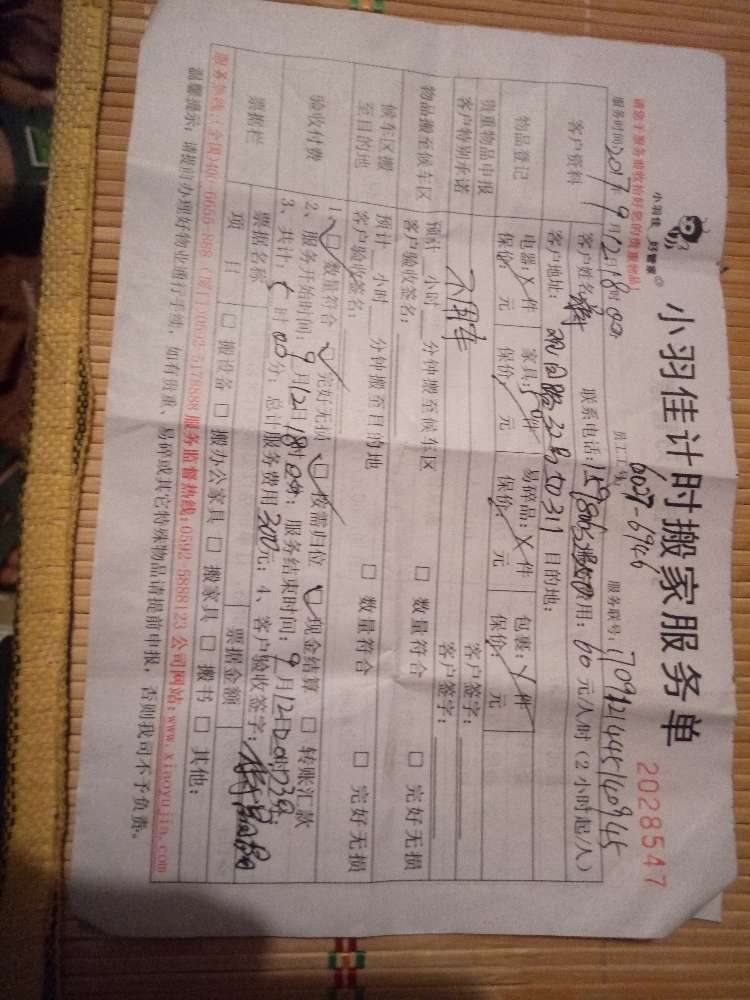 小羽佳 好管家
小羽佳计时搬家服务单
2028547
请您于服务前收拾好您的贵重物品!
服务时间:2017年9月12日18时00分 员工工号:6027-6946 服务联号:
客户资料 客户姓名: 联系电话: 费用:60元/人/时(2小时起/人)
客户地址: 32号50311 目的地:
物品登记 电器: 件 家具: 件 易碎品: 件 包裹: 件
保价: 元 保价: 元 保价: 元 保价: 元
贵重物品申报 客户签字:
客户特别承诺 不用车 客户签字:
物品搬至候车区 预计 小时 分钟搬至候车区 □ 数量符合 □ 完好无损
客户验收签名:
候车区搬至目的地 预计 小时 分钟搬至目的地 □ 数量符合 □ 完好无损
客户验收签名:
验收付费 1、□ 数量符合 □ 完好无损 □ 按需归位 □ 现金结算 □ 转账汇款
2、服务开始时间:9月12日18时00分; 服务结束时间:9月12日20时 分;
3、共计 时00分; 总计服务费用300元; 4、客户验收签字:
票据栏 票据名称 票据金额
项目 □ 搬设备 □ 搬办公家具 □ 搬家具 □ 搬书 □ 其他:
服务热线:(全国)400-6666-888 (厦门)0592-5178888 服务监督热线:0592-5888123 公司网站:www.xiaoyujia.com
温馨提示: 请提前办理好物业通行手续, 如有贵重、易碎或其它特殊物品请提前申报, 否则我司不予负责。